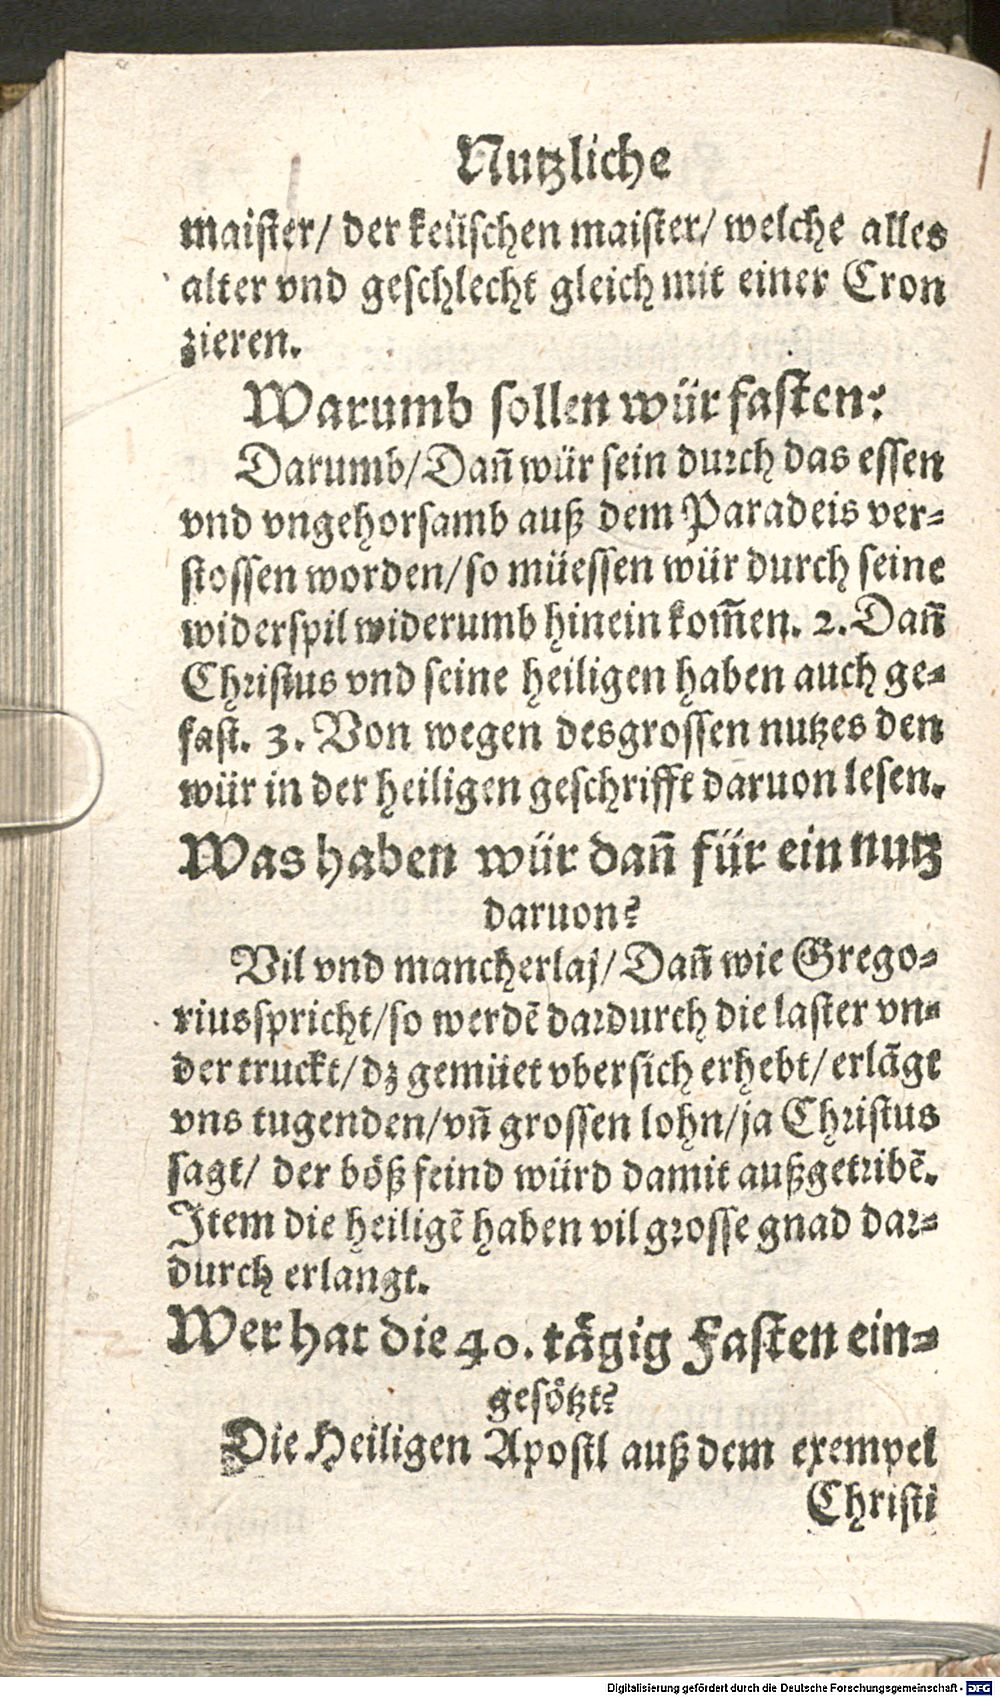 Nutzliche
maister/ der keüschen maister/ welche alles
alter vnd geschlecht gleich mit einer Cron
zieren.
Warumb sollen wür fasten?
Darumb/ Dañ wür sein durch das essen
vnd vngehorsamb auß dem Paradeis ver-
stossen worden/ so müessen wür durch seine
widerspil widerumb hinein kom̃en. 2. Dañ
Christus vnd seine heiligen haben auch ge-
fast. 3. Von wegen des grossen nutzes den
wür in der heiligen geschrifft daruon lesen.
Was haben wür dañ für ein nutz
daruon?
Vil vnd mancherlaj/ Dañ wie Grego-
rius spricht/ so werdẽ dardurch die laster vn-
der truckt/ dz gemüet vbersich erhebt/ erlãgt
vns tugenden/ vñ grossen lohn/ ja Christus
sagt/ der böß feind würd damit außgetribẽ.
Item die heiligẽ haben vil grosse gnad dar-
durch erlangt.
Wer hat die 40. tägig Fasten ein-
gesötzt?
Die Heiligen Apostl auß dem exempel
Christi
Digitalisierung gefördert durch die Deutsche Forschungsgemeinschaft - DFG